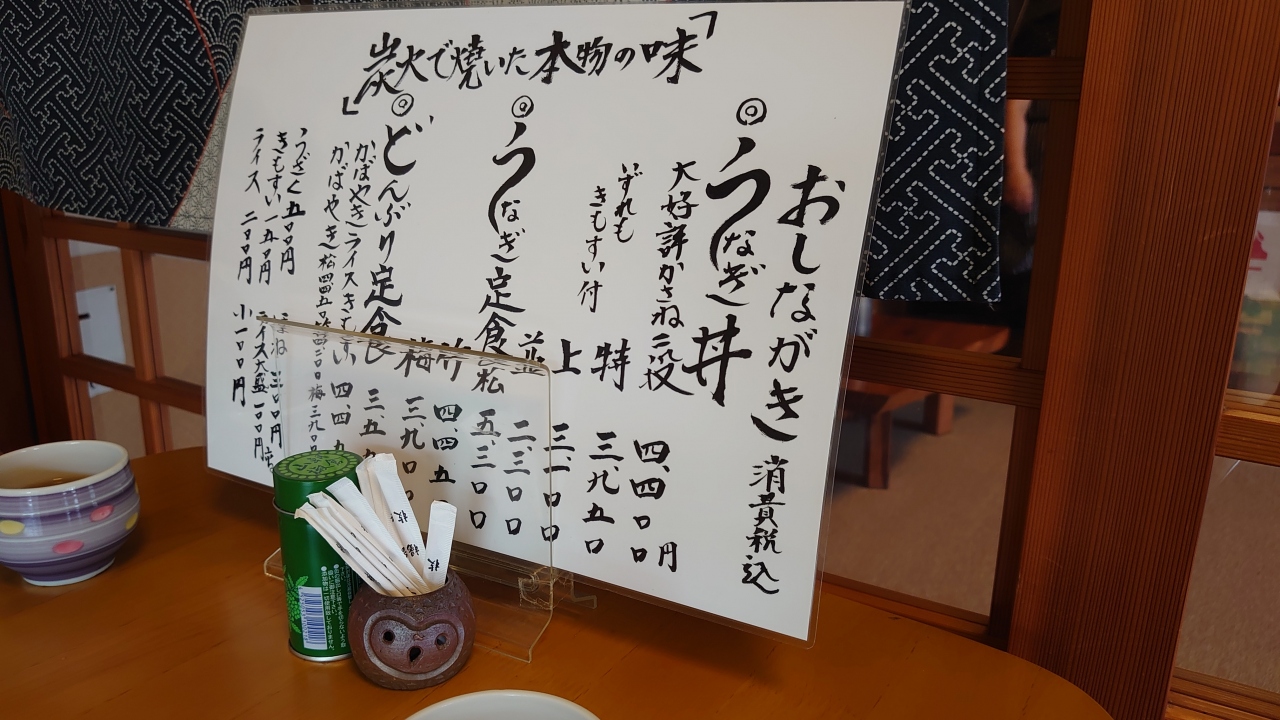 「炭火で焼いた本物の味」
おしながき 消費税込
◎うなぎ丼
大好評かさね二段 四、四〇〇円
特 三、九五〇
上 三、一〇〇
並 二、三〇〇
いずれも
きもすい付
◎うなぎ定食 松 五、三〇〇
竹 四、四五〇
梅 三、九〇〇
◎どんぶり定食 三、五
かばやきライスきもすい 四四
かばやき 松四四五〇 梅三九〇〇
うざく 五〇〇円
きもすい 一五〇円
ライス 二〇〇円
ほね 三〇〇円
ライス大盛 一〇〇円
小一〇〇円